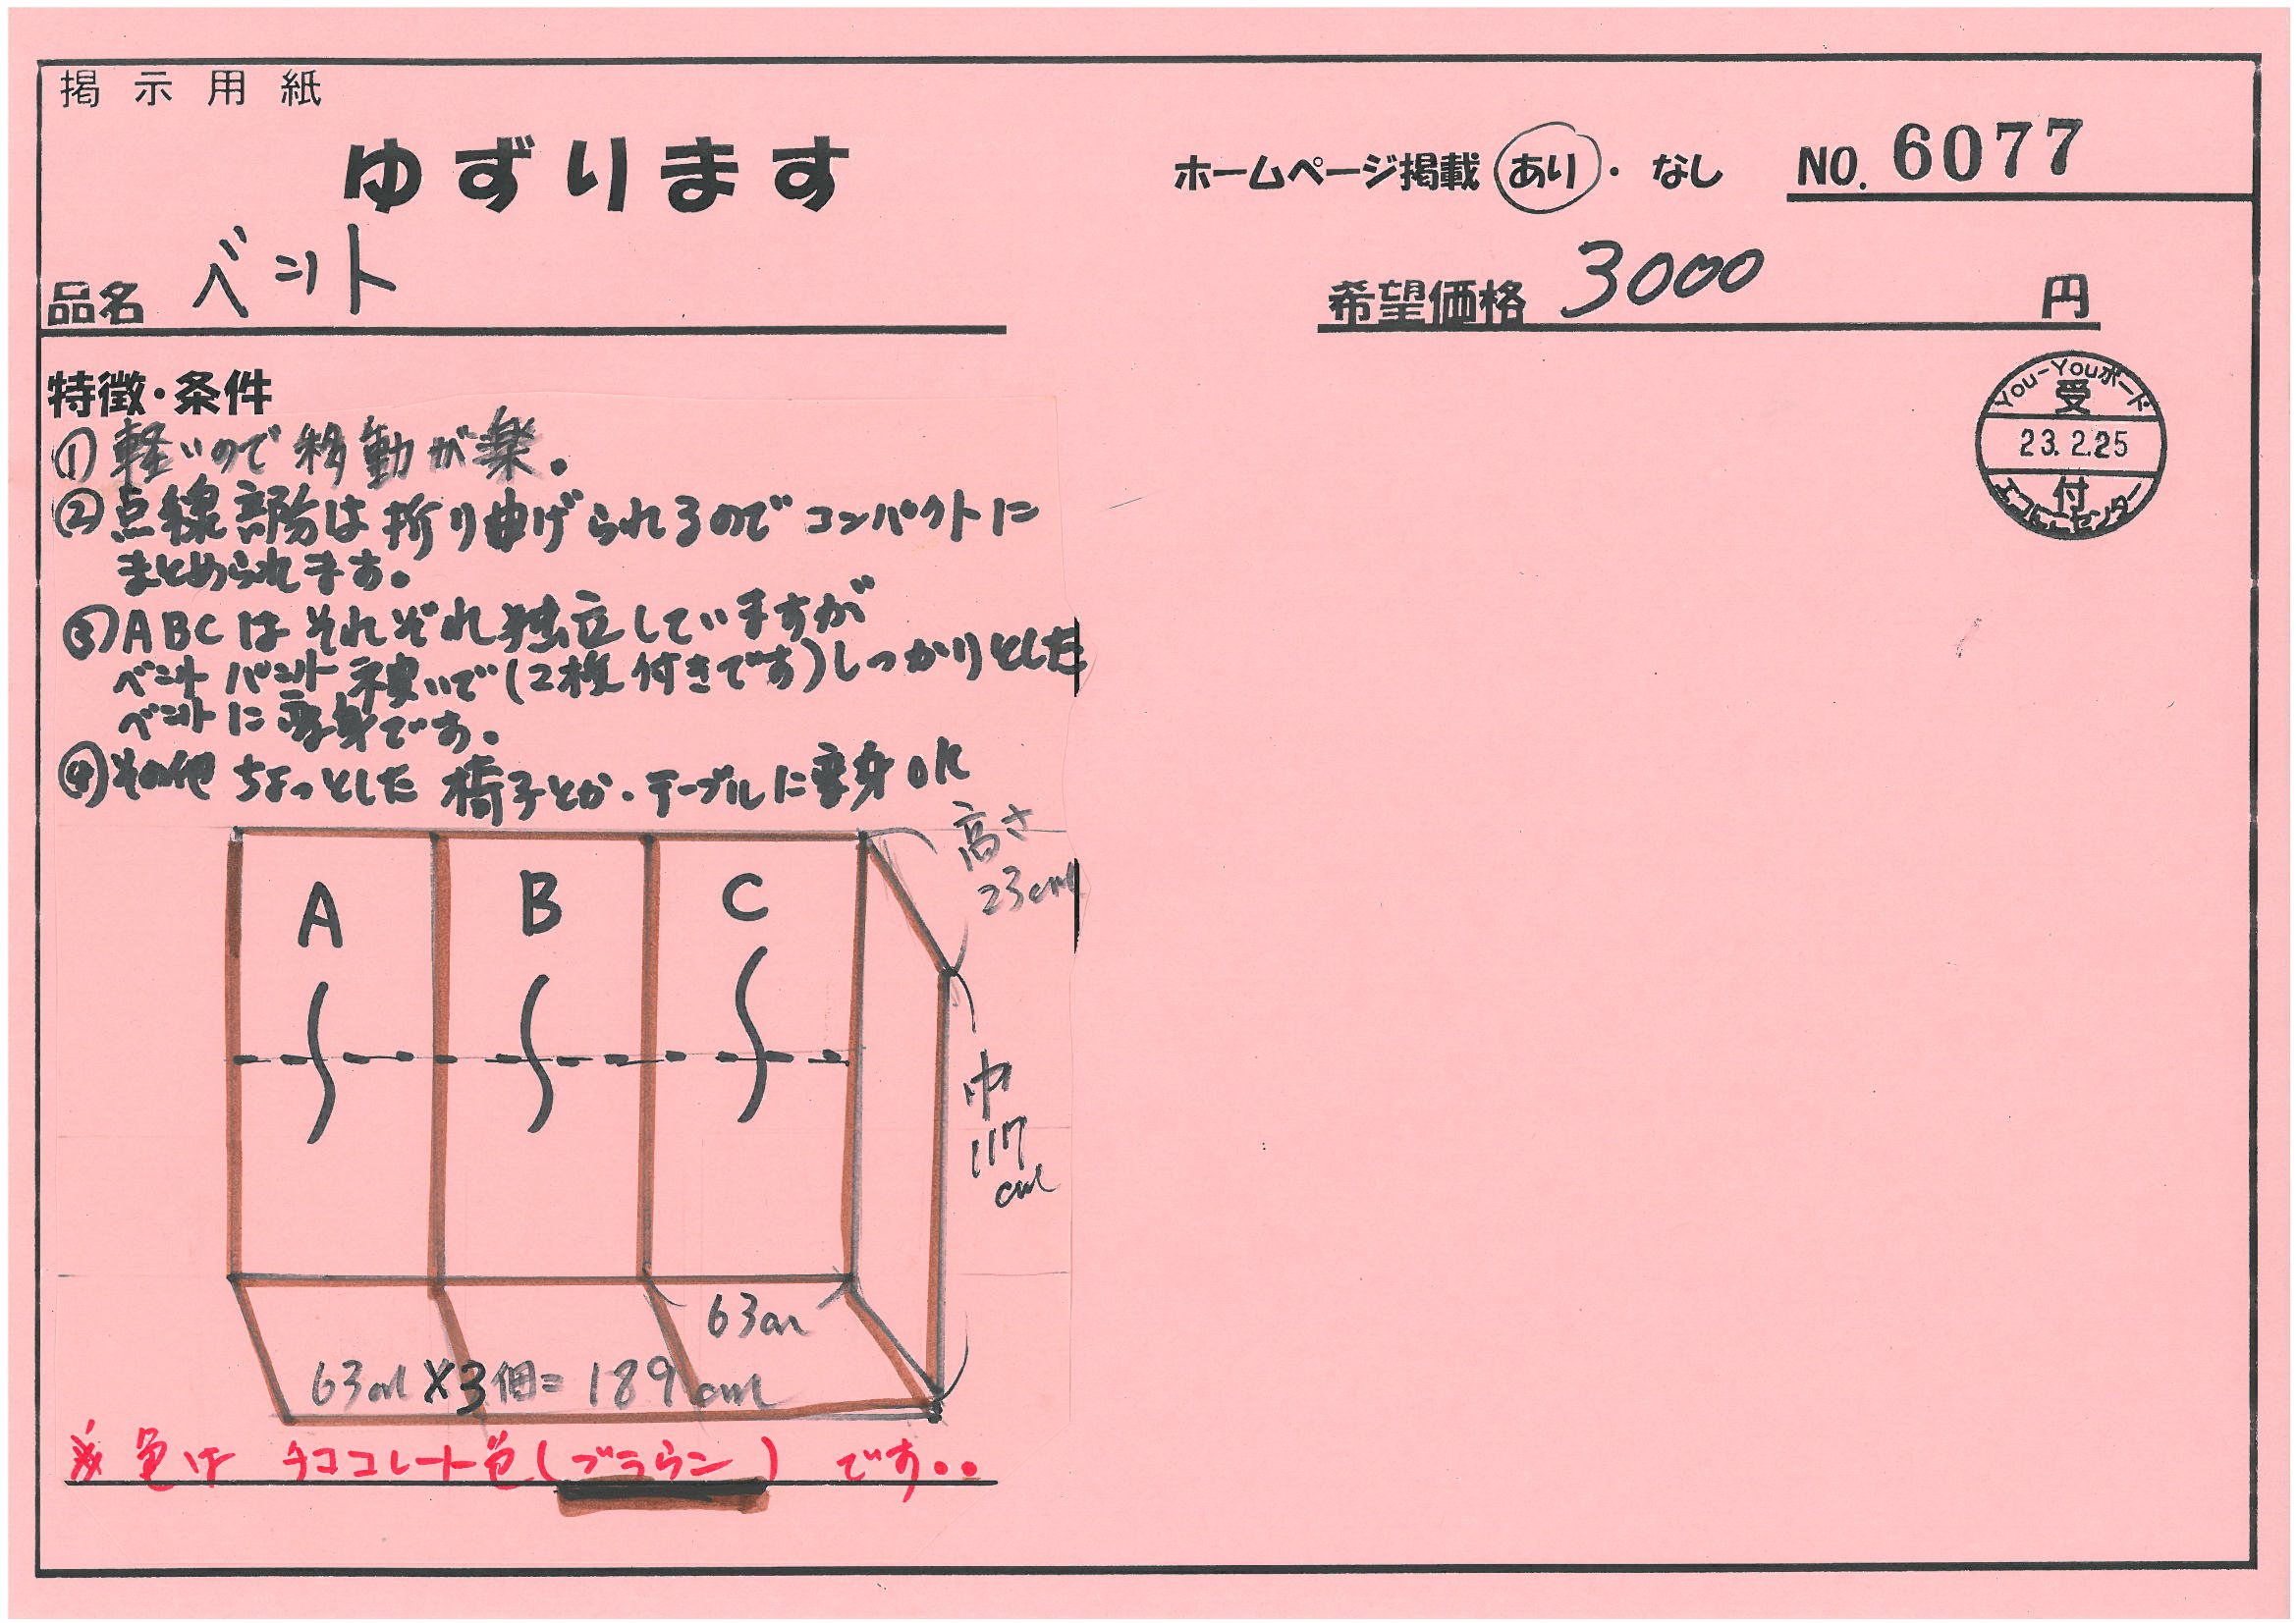 掲示用紙
ゆずります
ホームページ掲載 あり・なし
NO. 6077
品名 ベット
希望価格 3000 円
特徴・条件
You-Youボード
受
23.2.25
付
エコにこセンター
①軽いので移動が楽。
②点線部分は折り曲げられるのでコンパクトに
まとめられます。
③ABCはそれぞれ独立していますが
ベットパット 裏いで(2枚付きです)しっかりとした
ベットに変身です。
④その他ちょっとした椅子とか・テーブルに変身OK
高さ
23cm
A
B
C
巾
117
cm
63cm
63cm×3個=189cm
※色はチョコレート色(ブラウン)です..